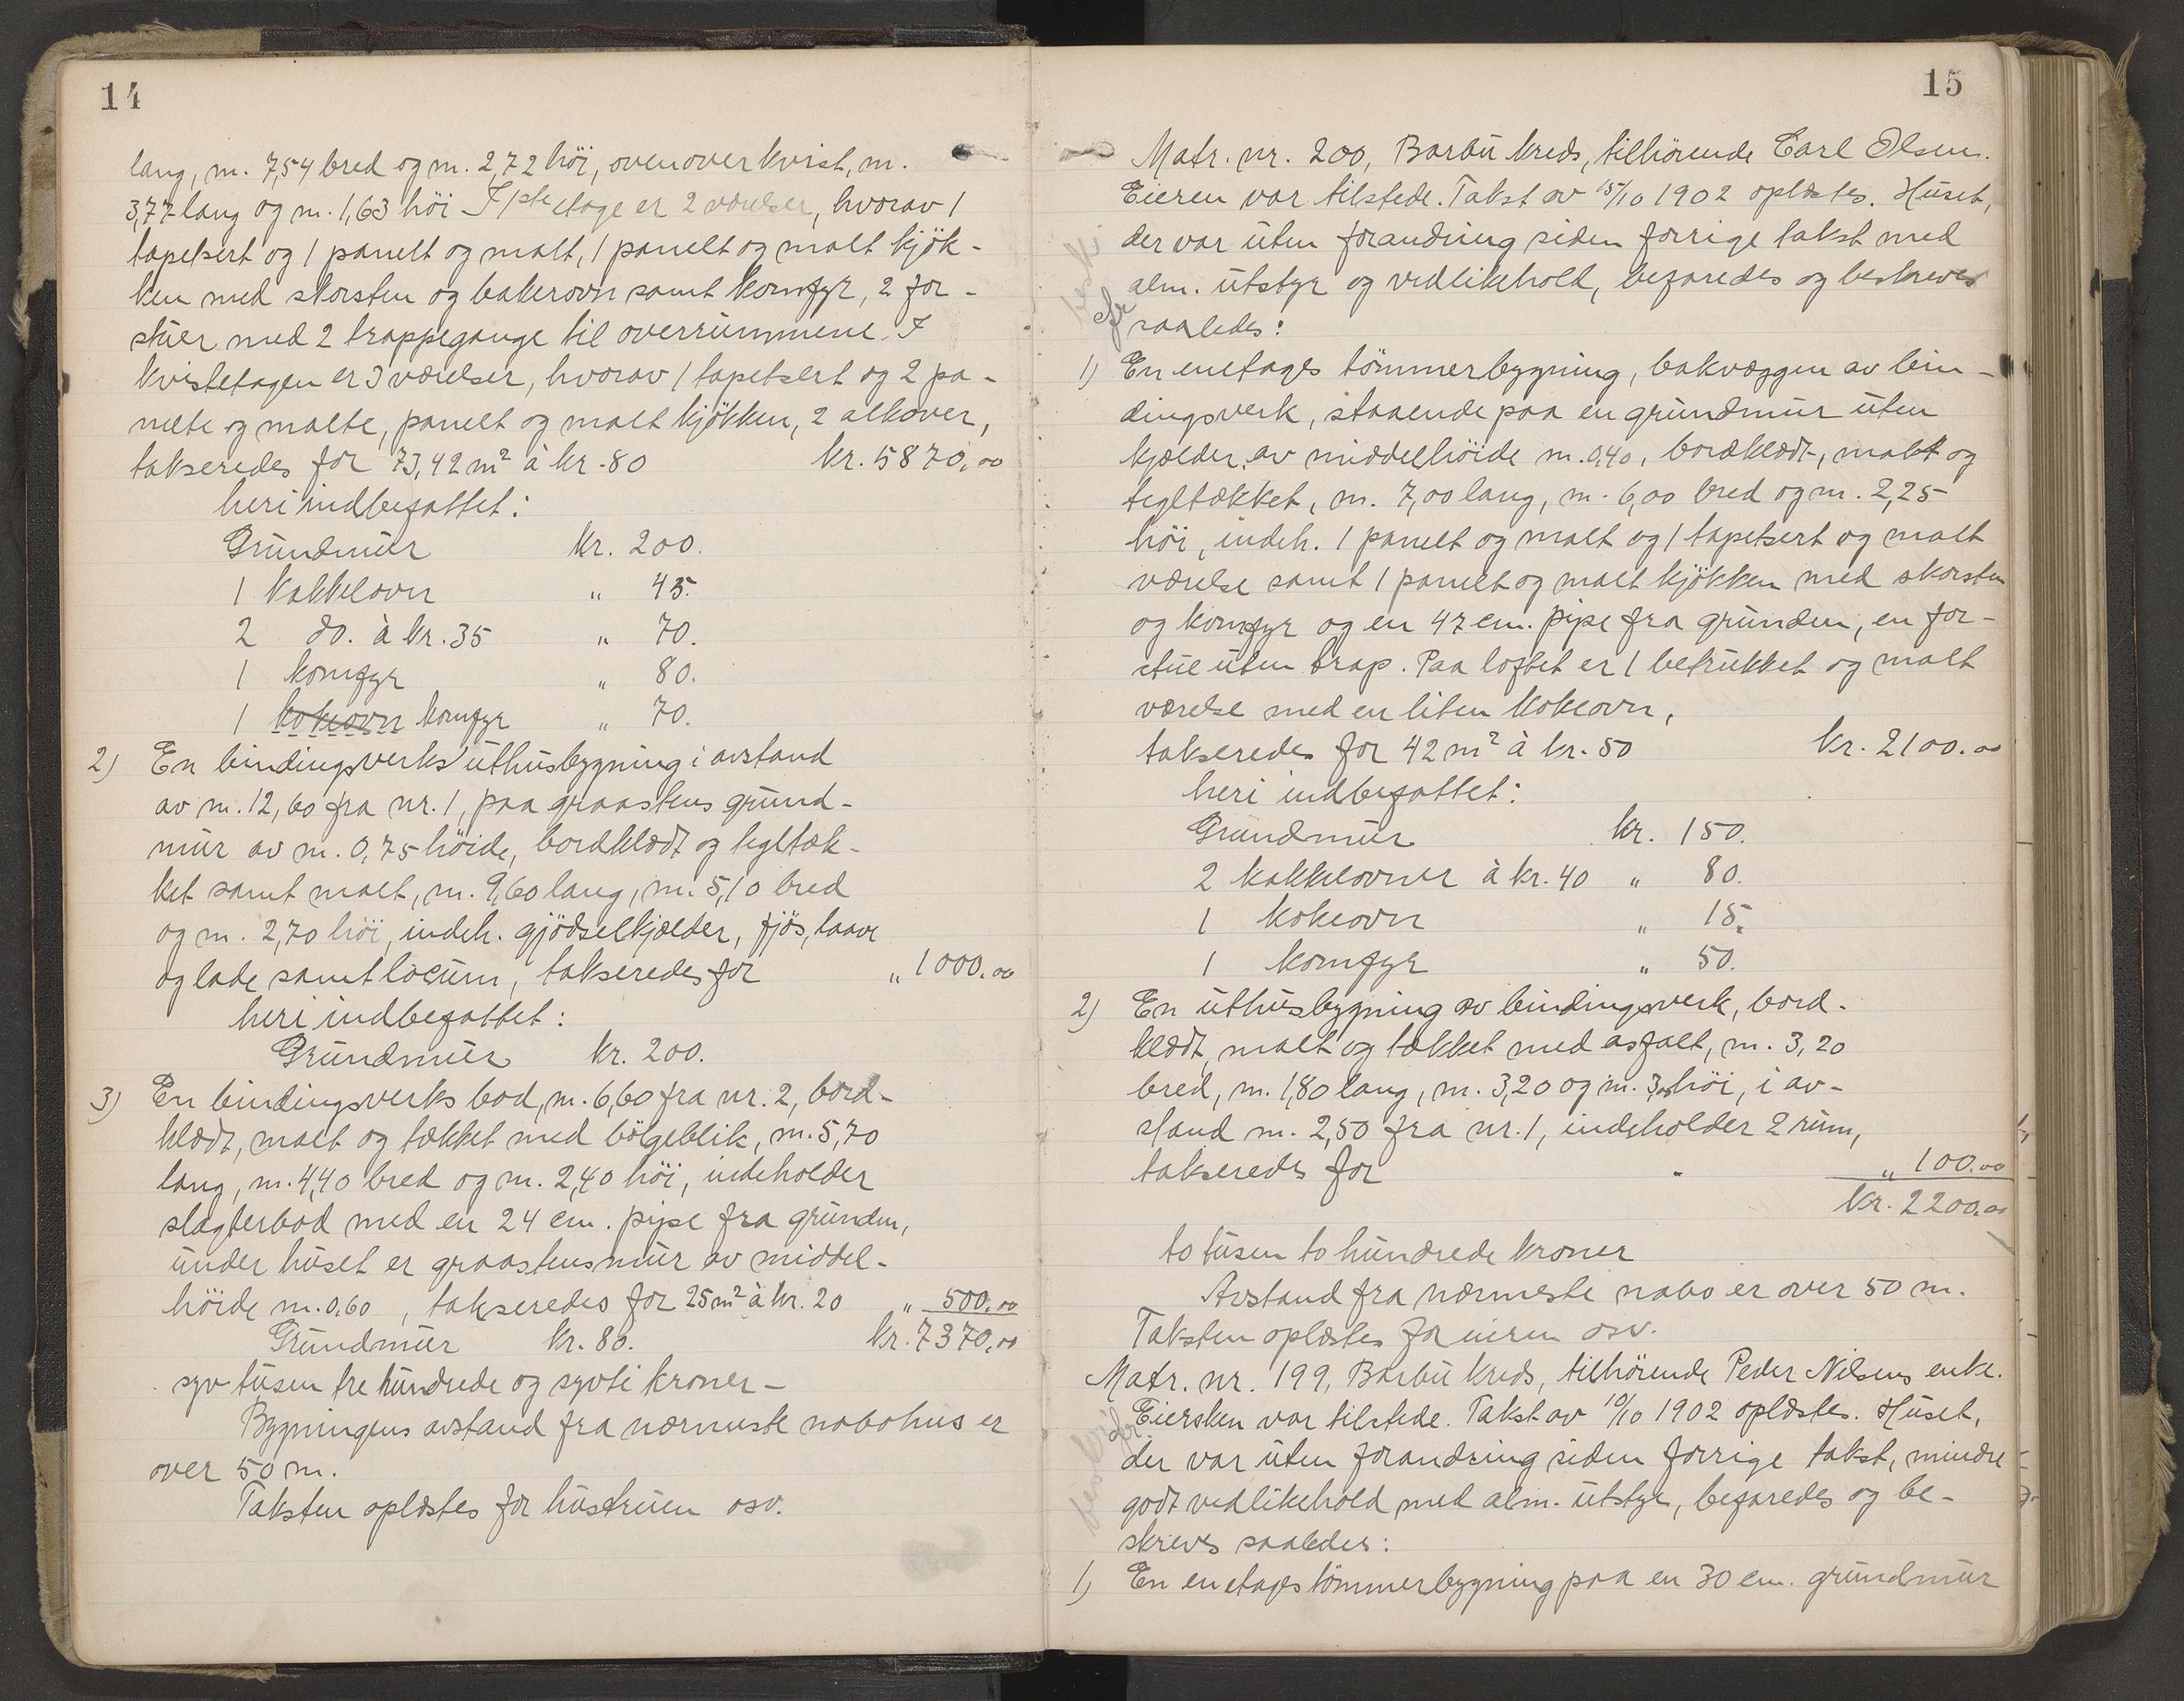 14
lang, m. 7,54 bred og m. 2,72 höi, ovenover kvist, m.
3,77 lang og m. 1,63 höi I 1ste etage er 2 værelser, hvorav 1
tapetsert og 1 panelt og malt, 1 panelt og malt kjök-
ken med skorsten og bakerovn samt komfyr, 2 for-
stuer med 2 trappegange til overrummene. I
kvistetagen er 3 værelser, hvorav 1 tapetsert og 2 pa-
nelte og malte, panelt og malt kjökken, 2 alkover,
takseredes for 73,42 m² à kr. 80 kr. 5870,00
heri indbefattet:
Grundmur kr. 200.
1 kakkelovn " 45.
2 do. à kr. 35 " 70.
1 komfyr " 80.
1 kokeovn komfyr " 70.
2) En bindingsverks uthusbygning i avstand
av m. 12,60 fra nr. 1, paa graastens grund-
mur av m. 0,75 höide, bordklædt og tegltæk-
ket samt malt, m. 9,60 lang, m. 5,10 bred
og m. 2,70 höi, indeh. gjödselkjælder, fjös, laave
og lade samt locum, takseredes for " 1000.00
heri indbefattet:
Grundmur kr. 200.
3) En bindingsverks bod, m. 6,60 fra nr. 2, bord-
klædt, malt og tækket med bölgeblik, m. 5,70
lang, m. 4,40 bred og m. 2,40 höi, indeholder
slagterbod med en 24 cm. pipe fra grunden,
under huset er graastensmur av middel-
höide m. 0,60, takseredes for 25 m² à kr. 20 " 500.00
Grundmur kr. 80. kr. 7370,00
syv tusen tre hundrede og sytti kroner —
Bygningens avstand fra nærmeste nabohus er
over 50 m.
Taksten oplæstes for hustruen osv.
15
Matr. nr. 200, Barbu kreds, tilhörende Carl Olsen.
Eieren var tilstede. Takst av 15/10 1902 oplæstes. Huset,
der var uten forandring siden forrige takst med
alm. utstyr og vedlikehold, befaredes og beskreves
saaledes:
1) En enetages tömmerbygning, bakvæggen av bin-
dingsverk, staaende paa en grundmur uten
kjælder, av middelhöide m. 0,40, bordklædt, malt og
tegltækket, m. 7,00 lang, m. 6,00 bred og m. 2,25
höi, indeh. 1 panelt og malt og 1 tapetsert og malt
værelse samt 1 panelt og malt kjökken med skorsten
og komfyr og en 47 cm. pipe fra grunden, en for-
stue uten trap. Paa loftet er 1 betrukket og malt
værelse med en liten kokeovn,
takseredes for 42 m² à kr. 50 kr. 2100.00
heri indbefattet:
Grundmur kr. 150.
2 kakkelovner à kr. 40 " 80.
1 kokeovn " 15.
1 komfyr " 50.
2) En uthusbygning av bindingsverk, bord-
klædt, malt og tækket med asfalt, m. 3,20
bred, m. 1,80 lang, m. 3,20 og m. höi, i av-
stand m. 2,50 fra nr. 1, indeholder 2 rum,
takseredes for " 100.00
kr. 2200.00
to tusen to hundrede kroner
Avstand fra nærmeste nabo er over 50 m.
Taksten oplæstes for eieren osv.
Matr. nr. 199, Barbu kreds, tilhörende Peder Nilsens enke.
Eiersken var tilstede. Takst av 10/10 1902 oplæstes. Huset,
der var uten forandring siden forrige takst, mindre
godt vedlikehold med alm. utstyr, befaredes og be-
skreves saaledes:
1) En enetages tömmerbygning paa en 30 cm. grundmur